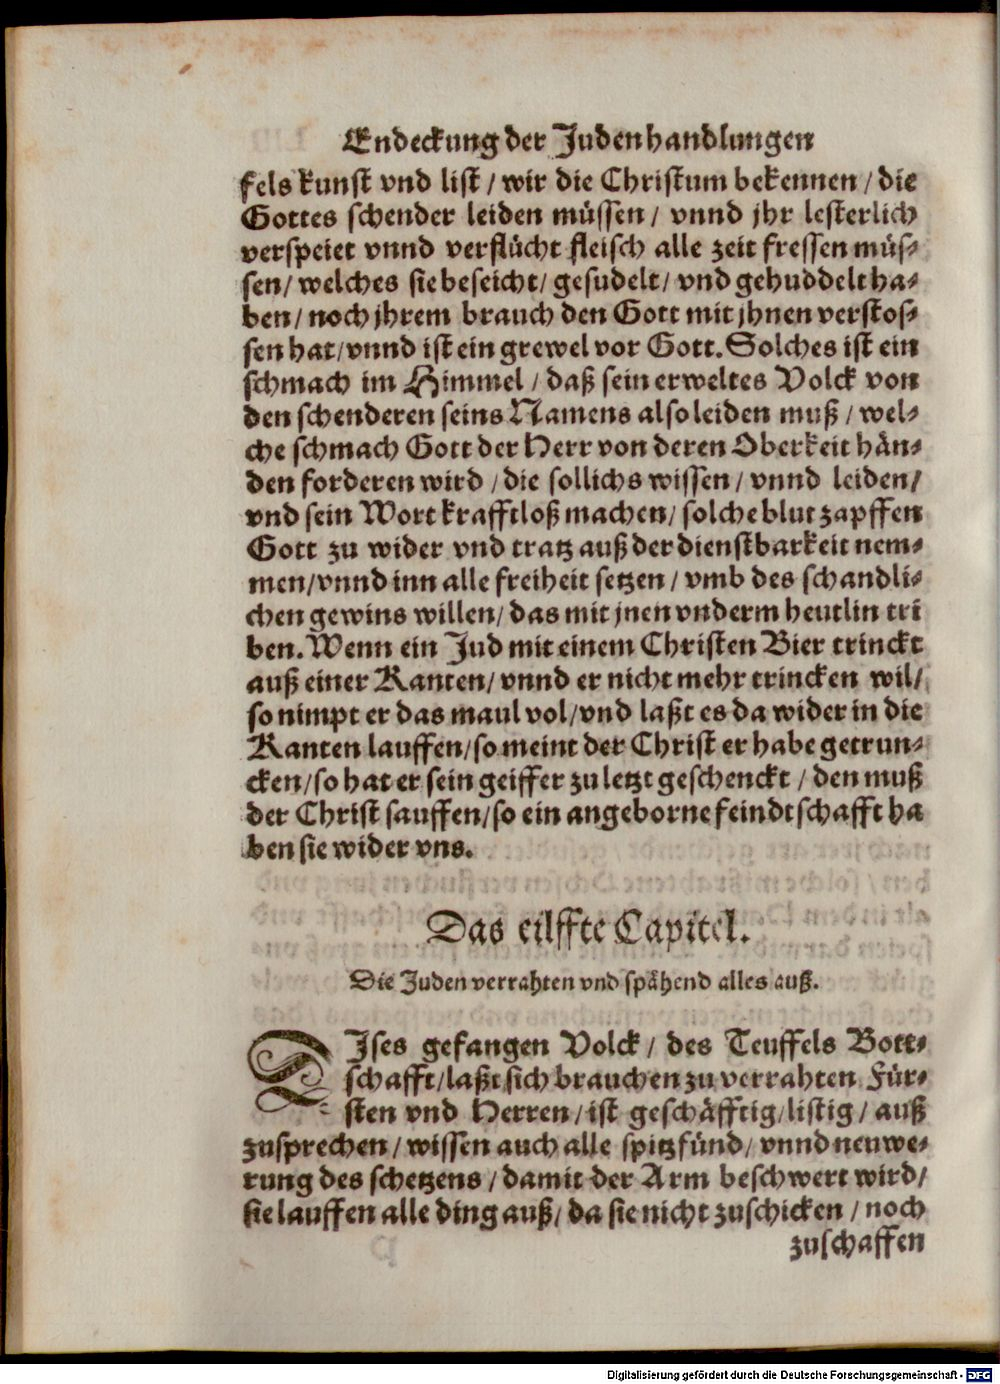 Endeckung der Juden handlungen
fels kunst vnd list / wir die Christum bekennen / die
Gottes schender leiden müssen / vnnd jhr lesterlich
verspeiet vnnd verflücht fleisch alle zeit fressen müs-
sen / welches sie beseicht / gesudelt / vnd gehuddelt ha-
ben / noch jhrem brauch den Gott mit jhnen verstos-
sen hat / vnnd ist ein grewel vor Gott. Solches ist ein
schmach im Himmel / daß sein erweltes Volck von
den schenderen seins Namens also leiden muß / wel-
che schmach Gott der Herr von deren Oberkeit hän-
den forderen wird / die sollichs wissen / vnnd leiden /
vnd sein Wort krafftloß machen / solche blut zapffen
Gott zu wider vnd tratz auß der dienstbarkeit nem-
men / vnnd inn alle freiheit setzen / vmb des schandli-
chen gewins willen / das mit jnen vnderm heutlin tri
ben. Wenn ein Jud mit einem Christen Bier trinckt
auß einer Kanten / vnnd er nicht mehr trincken wil /
so nimpt er das maul vol / vnd laßt es da wider in die
Kanten lauffen / so meint der Christ er habe getrun-
cken / so hat er sein geiffer zu letzt geschenckt / den muß
der Christ sauffen / so ein angeborne feindtschafft ha
ben sie wider vns.
Das eilffte Capitel.
Die Juden verrahten vnd spähend alles auß.
DJses gefangen Volck / des Teuffels Bott-
schafft / laßt sich brauchen zu verrahten Für-
sten vnd Herren / ist geschäfftig / listig / auß
zusprechen / wissen auch alle spitzfünd / vnnd neuwe-
rung des schetzens / damit der Arm beschwert wird /
sie lauffen alle ding auß / da sie nicht zuschicken / noch
zuschaffen
Digitalisierung gefördert durch die Deutsche Forschungsgemeinschaft - DFG